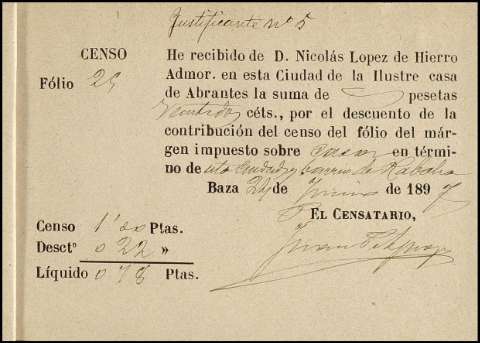 Justificante nº 5
CENSO
Fólio 29
He recibido de D. Nicolás Lopez de Hierro
Admor. en esta Ciudad de la Ilustre casa
de Abrantes la suma de pesetas
Veintidos céts., por el descuento de la
contribución del censo del fólio del már-
gen impuesto sobre casas en térmi-
no de esta Ciudad y barrio de Rabalia
Baza 29 de Junio de 1897
EL CENSATARIO,
Censo 1'00 Ptas.
Desctº 0 22 »
Líquido 0 78 Ptas.